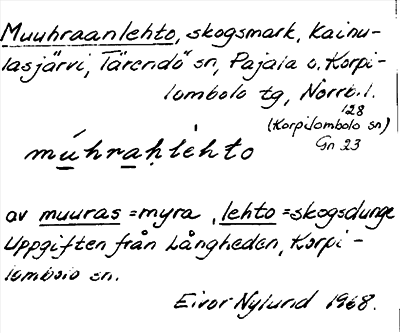 Muuhraanlehto, skogsmark, Kainu-
lasjärvi, Tärendö sn, Pajala o. Korpi-
lombolo tg, Norrb. l.
128
(Korpilombolo sn)
Gn 23
mú̲hra̲ḥlèhto
av muuras = myra, lehto = skogsdunge
Uppgiften från Långheden, Korpi-
lombolo sn.
Eivor Nylund 1968.